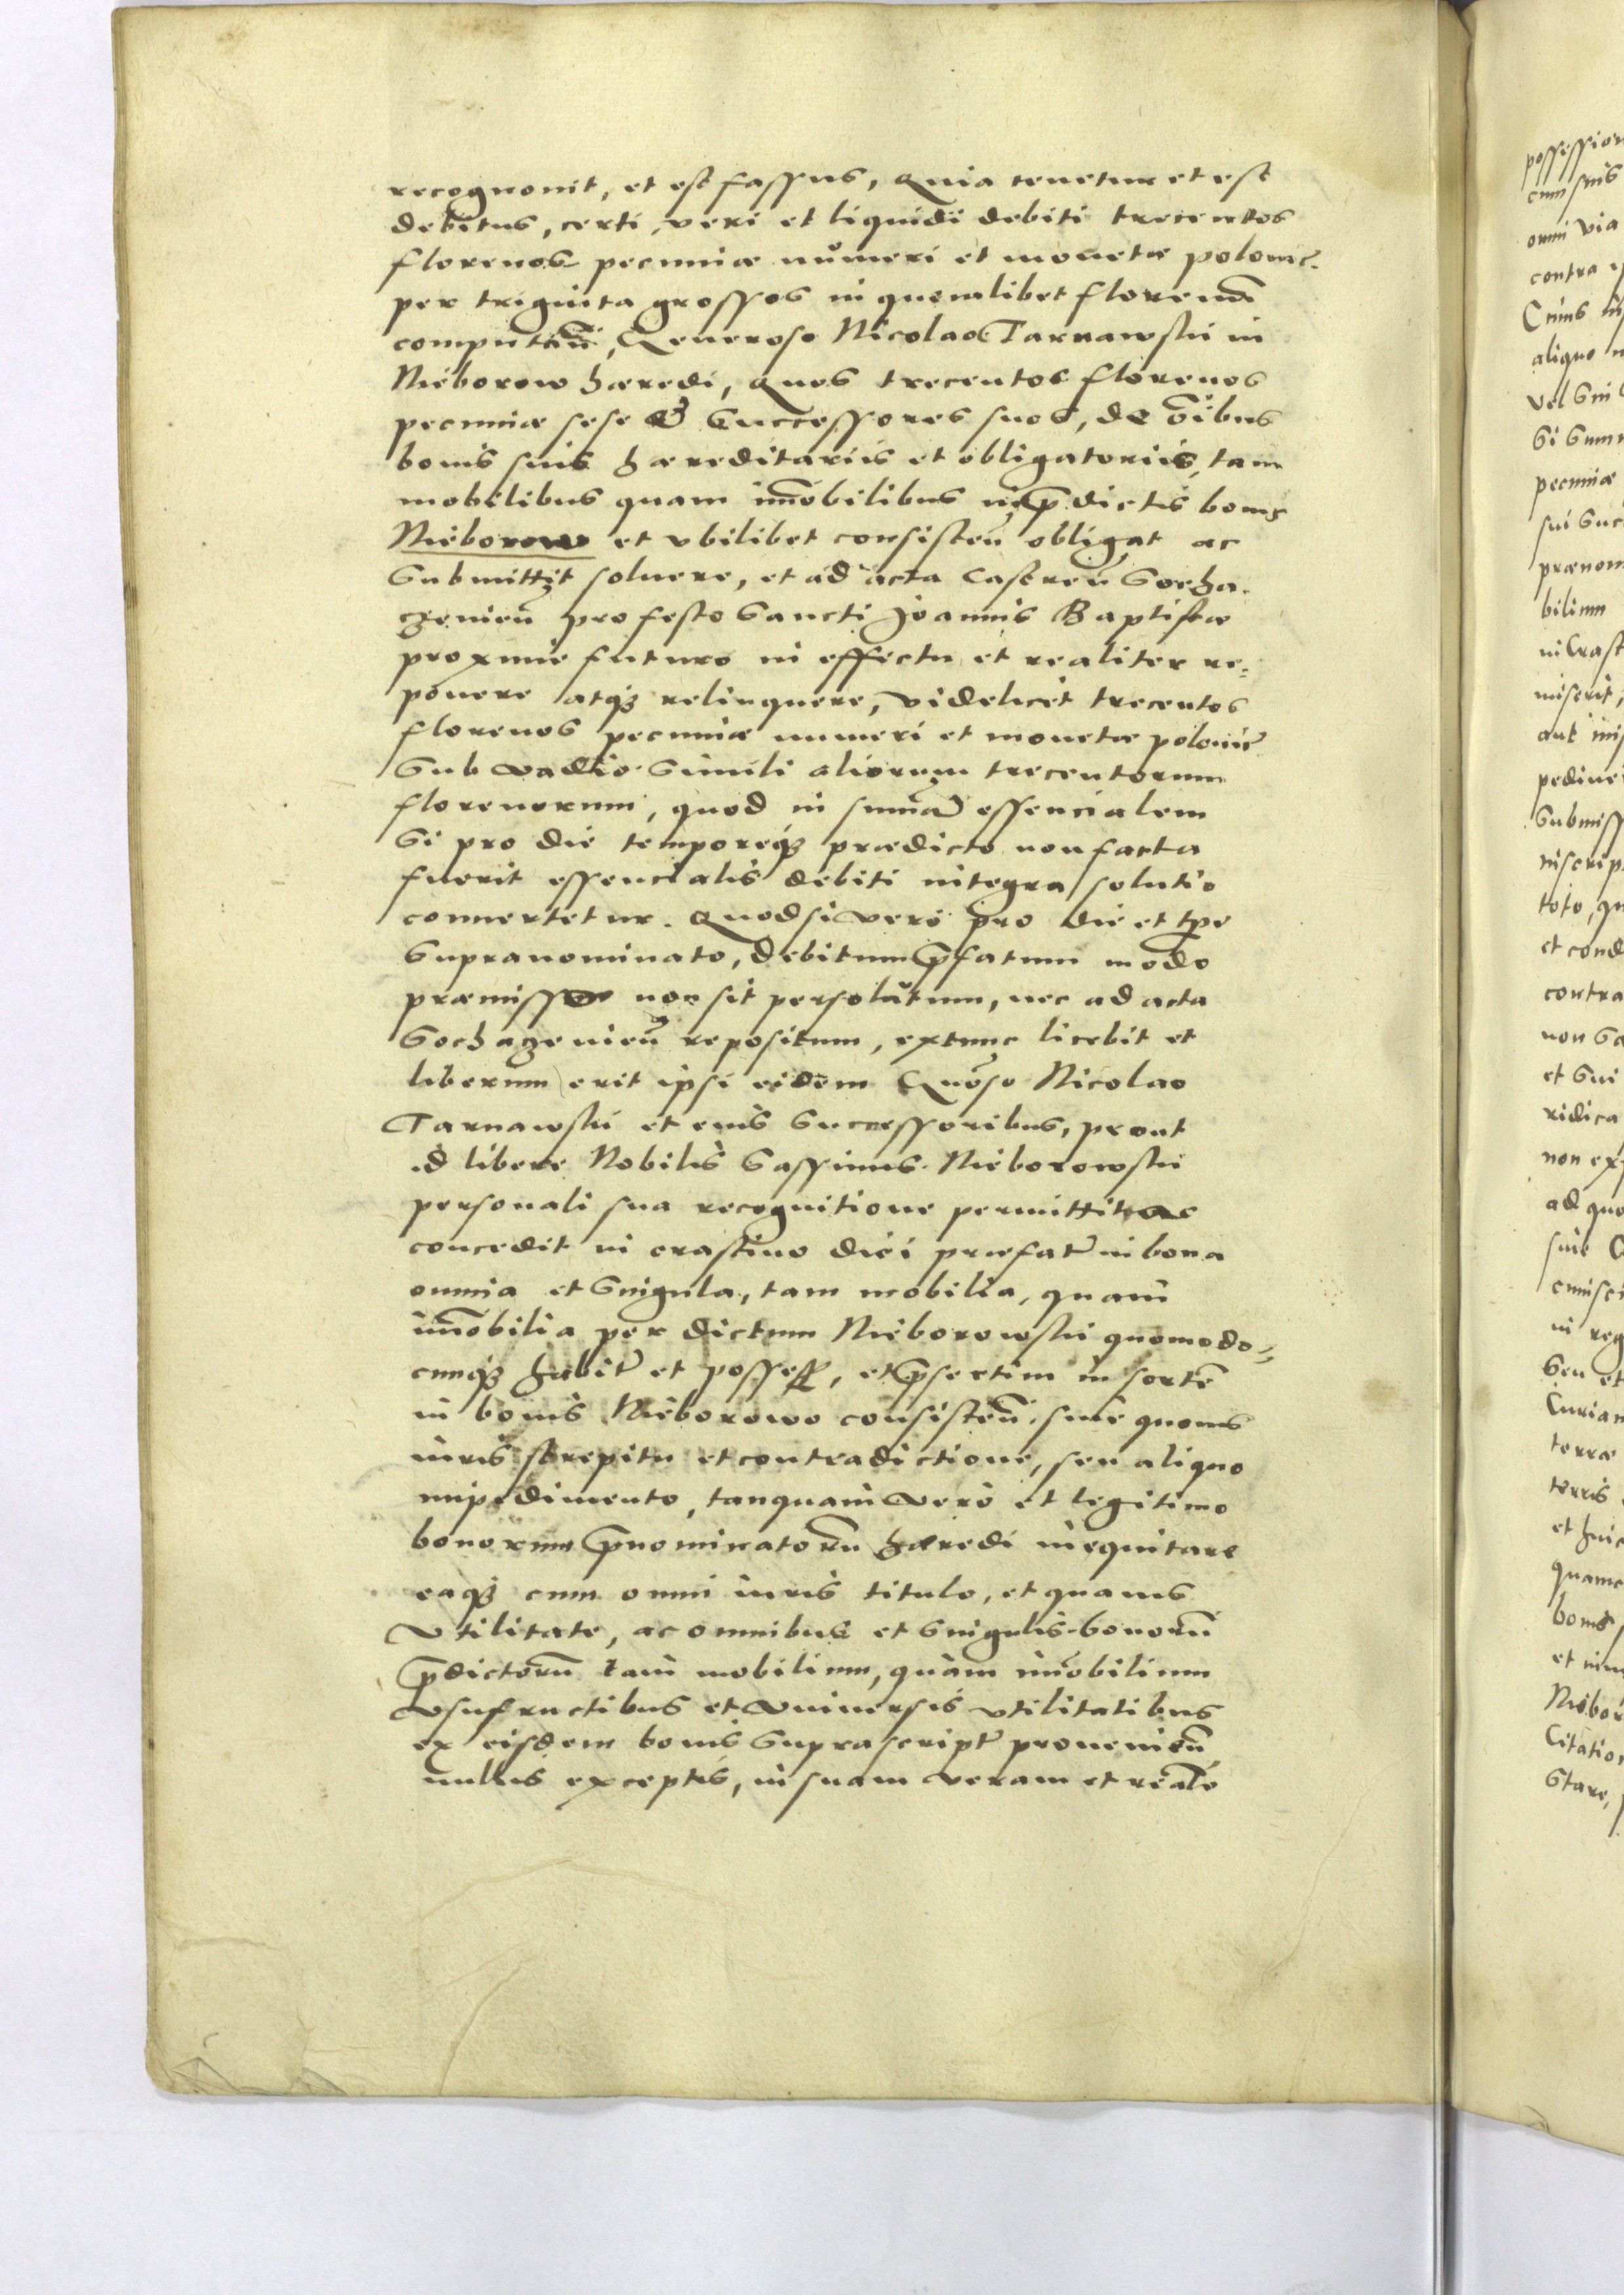 recognouit, et est fassus, Quia tenetur et est
debitus, certi, veri et liquidi debiti trecentos
florenos pecuniæ numeri et monetæ polonic̃.
per triginta grossos in quemlibet florenũ
computan̄, Generoso Nicolao Tarnawski in
Nieborow hæredi, Quos trecentos florenos
pecuniæ sese et Successores suos, de oĩbus
bonis suis hæreditariis et obligatoriis, tam
mobilibus quam im̄obilibus in p̄dictis bonis
Nieborow et vbilibet consisten̄ obligat ac
Submittit soluere, et ad acta Castren̄ Socha-
czenien̄ pro festo Sancti Joannis Baptistæ
proxime futuro in effectu et realiter re-
ponere atqꝫ relinquere, videlicet trecentos
florenos pecuniæ numeri et monetæ polonic̃
Sub vadio simili aliorum trecentorum
florenorum, quod in sum̄ã essencialem
Si pro die temporeqꝫ prædicto non facta
fuerit essencialis debiti integra solutio
conuertetur. Quodsi vero pro die et tp̄e
Supranominato, debitum p̄fatum modo
præmisso non sit persolutum, nec ad acta
Sochaczenien̄ repositum, extunc licebit et
liberum erit ipsi eidem Gn̄oso Nicolao
Tarnawski et eius Successoribus, prout
id libere Nobilis Sassinus Nieborowski
personali sua recognitione permittit ac
concedit in crastino diei præfat̃ in bona
omnia et Singula, tam mobilia, quam
im̄obilia per dictum Nieborowski quomodo-
cunqꝫ habit̃ et possess̃, et p̄sertim in sortẽ
in bonis Nieborowo consisten̄ sine quouis
iuris strepitu et contradictione, seu aliquo
impedimento, tanquam vero et legitimo
bonorum p̄nominatorũ hæredi inequitare
eaqꝫ cum omni iuris titulo, et quauis
Vtilitate, ac omnibus et Singulis bonorũ
p̄dictorũ tam mobilium, quam im̄obilium
vsufructibus et vniuersis vtilitatibus
ex eisdem bonis Suprascript̃ prouenien̄
nullis exceptis, in suam veram et realẽ
possession
cum suis
omni via
contra
Cuius
aliquo
vel Sui
Si Sum
pecuniæ
sui Suc
prænom
bilium
in Crast
miserit,
aut
pedine
Submiss
inscrip
toto, qu
et cond
contra
non Sa
et Sui
ridica
non ex
ad quo
siue
in reg
Seu et
Curiam
terræ
terris
et huic
quamc
bonis
Niebor
Citation
Stare,